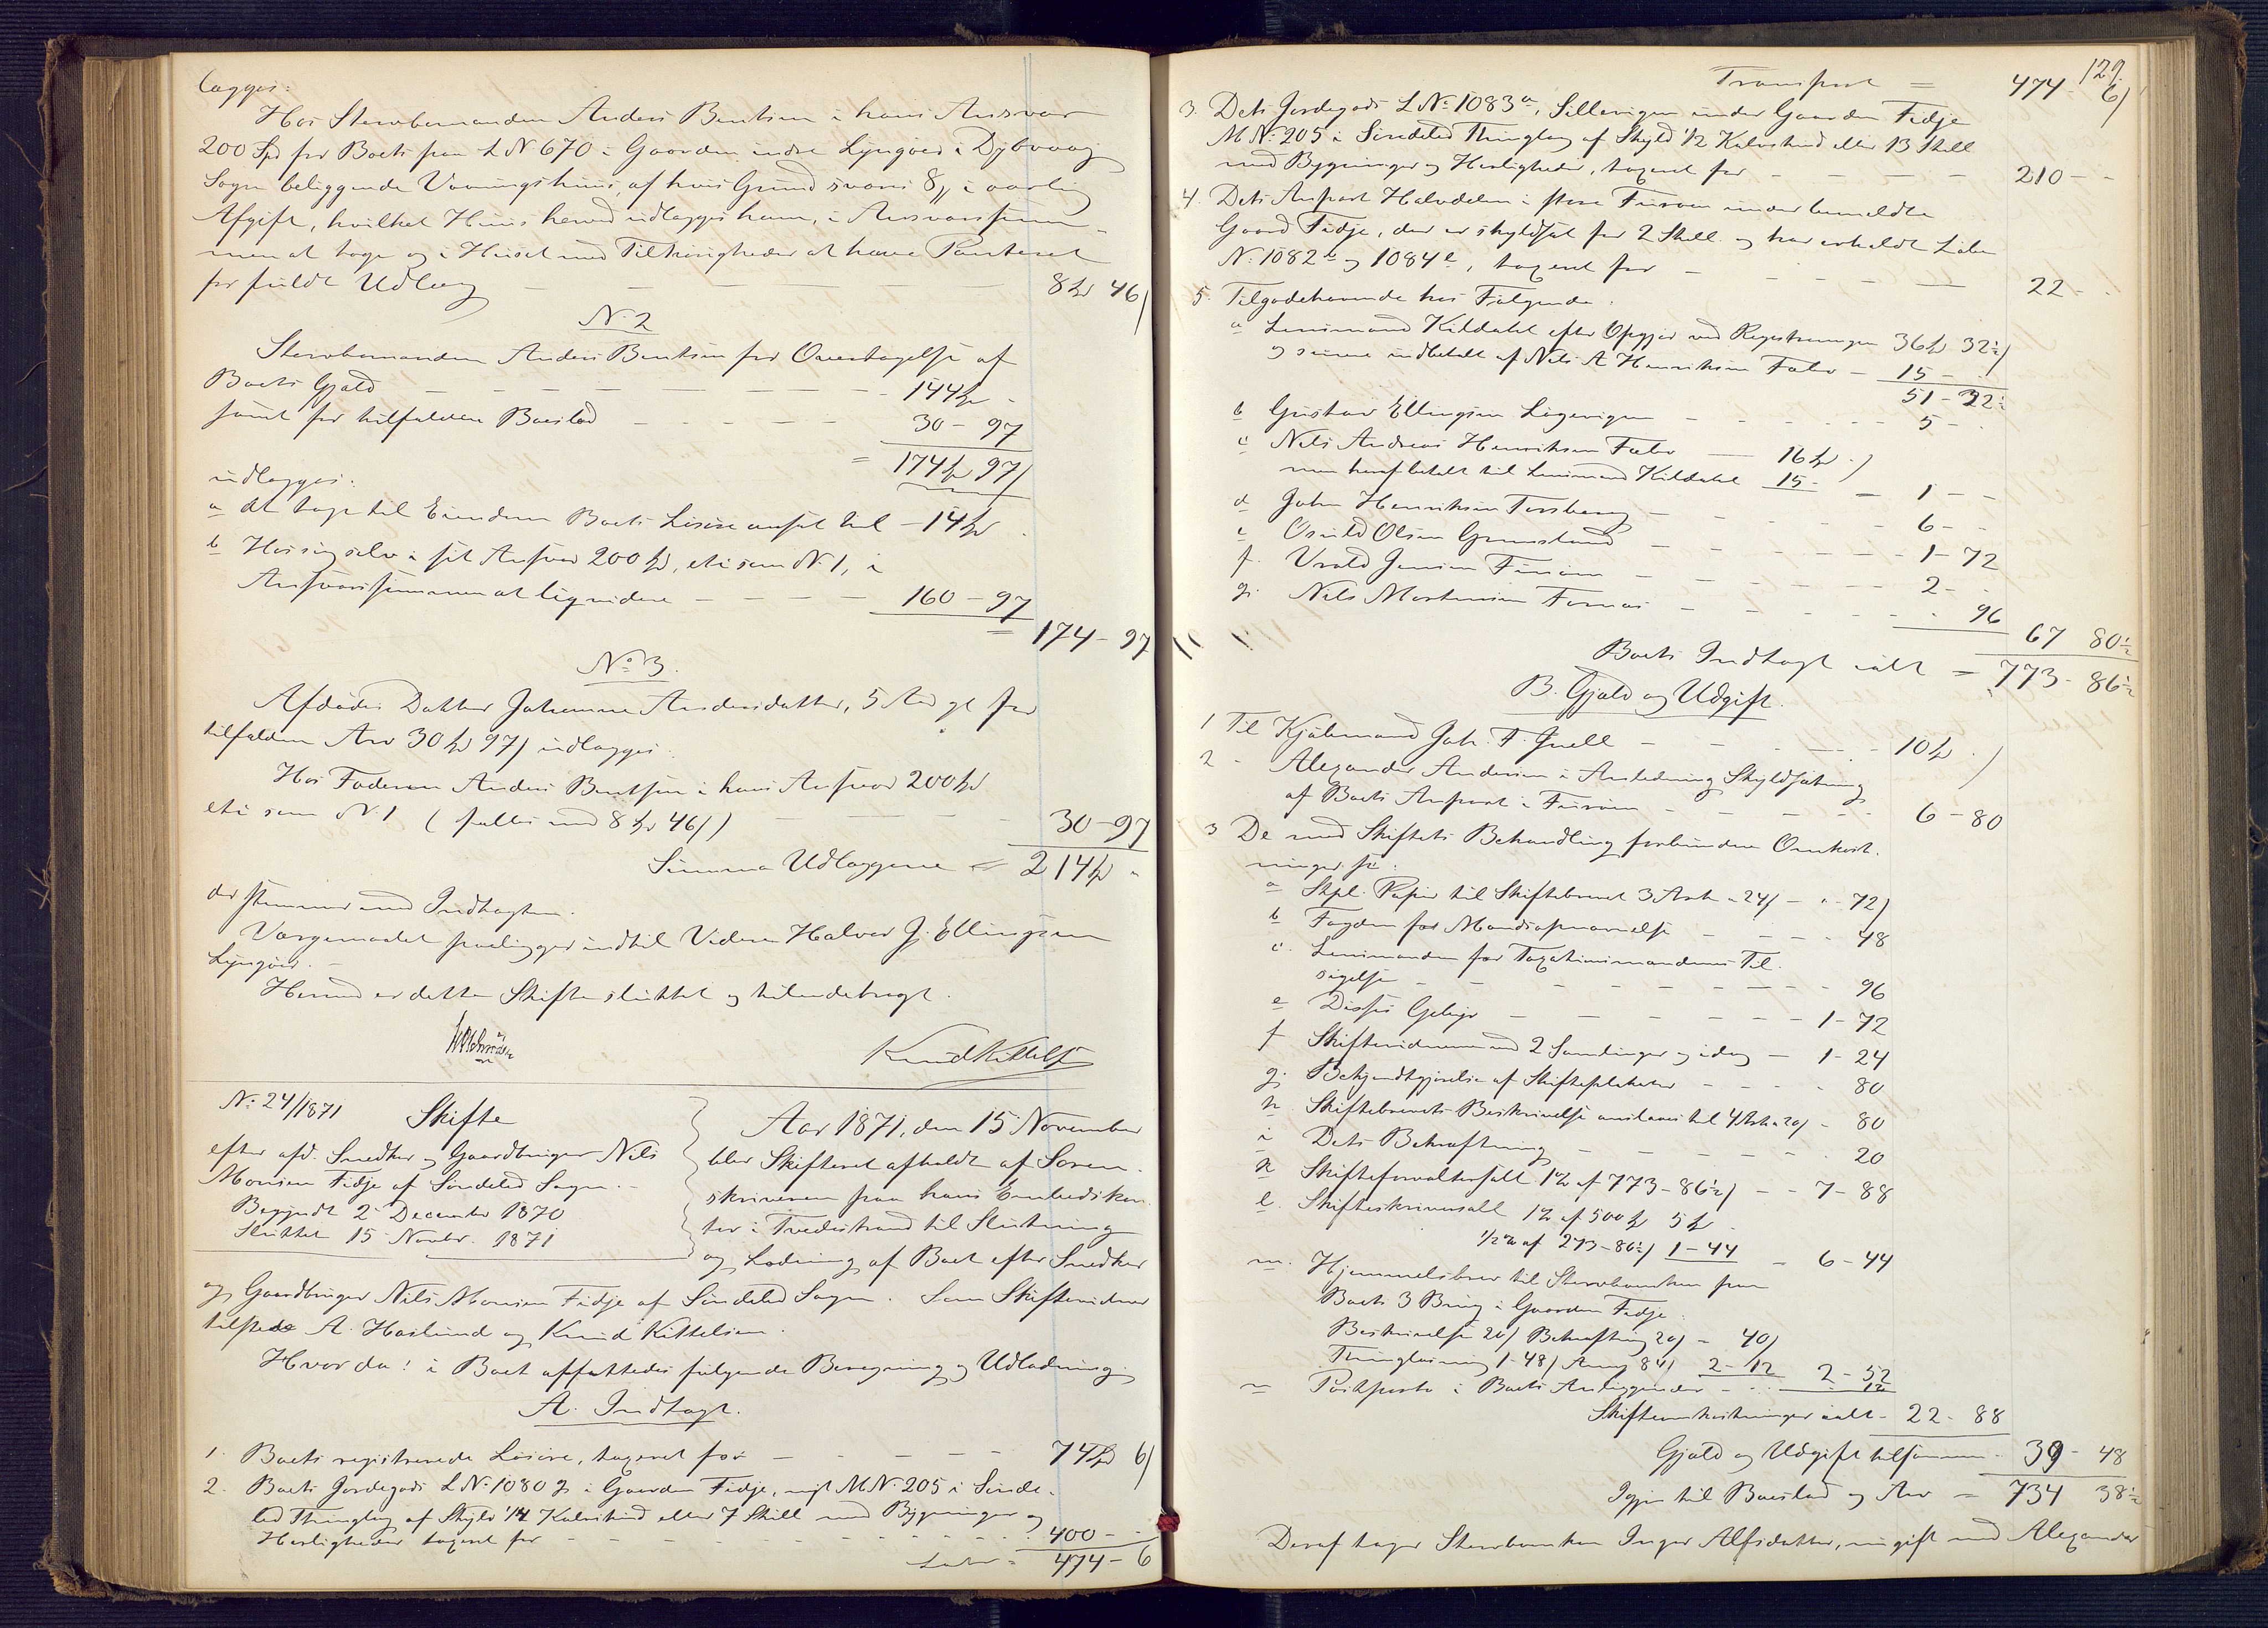 lægges:
Hos Stervbomanden Anders Bentsen i hans Ansvar
200 Spd for Boets paa L No 670 i Gaarden indre Lyngøer i Dybvaag
Sogn beliggende Vaaningshuus, af hvis Grund svares 8 i aarlig
Afgift, hvilket Huus herved udlægges ham, i Ansvarssum-
men at tage og i Huset med Tilhørigheder at have Panteret
for fuldt Udlæg — — — 8 Spd 46 /
No 2
Stervbomanden Anders Bentsen for Overtagelse af
Boets Gjæld — — — 144 Spd -
samt for tilfalden Boeslod — — — 30 - 97
= 174 Spd 97 /
udlægges:
a at tage til Eiendom Boets Løsøre ansat til — 14 Spd .
b Hos sig selv i sit Ansvar 200 Spd, etc. som No 1, i
Ansvarssummen at liqvidere — — — 160 - 97
= 174 - 97
No 3.
Afdødes Datter Johanne Andersdatter, 5 Aar gl. for
tilfalden Arv 30 Spd 97 / udlægges:
Hos Faderen Anders Bentsen i hans Ansvar 200 Spd
etc. som No 1 (fælles med 8 Spd 46 /) — — — 30 - 97
Summa Udlæggene = 214 Spd "
der stemmer med Indtægten.
Værgemaalet paaligger indtil Videre Halvor J. Ellingsen
Lyngøer. —
Hermed er dette Skifte sluttet og tilendebragt.
Knud Kittelsen
No 24/1871 Skifte
efter afd. Snedker og Gaardbruger Nils
Monsen Fidje af Søndeled Sogn. —
Begyndt 2 December 1870
Sluttet 15 Novbr. 1871
Aar 1871, den 15 November
blev Skifteret afholdt af Soren-
skriveren paa hans Embedskon-
tor i Tvedestrand til Slutning
og Lodning af Boet efter Snedker
og Gaardbruger Nils Monsen Fidje af Søndeled Sogn. Som Skiftevidner
tilstede A. Haslund og Knud Kittelsen.
Hvorda: i Boet affattedes følgende Beregning og Udlodning.
A. Indtægt.
1. Boets registrerede Løsøre, taxeret for — — — 74 Spd 6 /
2. Boets Jordegods L No 1080 g i Gaarden Fidje, nyt M No 205 i Sønde-
led Thinglag af Skyld 1/4 Kalvskind eller 7 Skill med Bygninger og
Herligheder taxeret for — — — 400 - -
Latus = 474 - 6
129.
Transport = 474 - 6 /
3. Dets Jordegods L No 1083 a, Sillevigen under Gaarden Fidje
M No 205 i Søndeled Thinglag af Skyld 1/2 Kalvskind eller 13 Skill
med Bygninger og Herligheder, taxeret for — — — 210 - -
4. Dets Anpart Halvdelen i store Furøen under bemeldte
Gaard Fidje, der er skyldsat for 2 Skill. og har erholdt Løbe
No 1082 b og 1084 b, taxeret for — — — 22 - .
5. Tilgodehavende hos Følgende:
a Lensmand Kiddahl efter Opgjør ved Registreringen 36 Spd 32 1/2 /
og senere indbetalt af Nils A Henriksen — 15 - .
51 - 32 1/2
b Gustav Ellingsen — — — 5 - .
c Nils Andreas Henriksen — 16 Spd . /
men heraf betalt til Lensmand Kiddahl 15 - — 1 - -
d John Henriksen — — — 6 - .
e Osuld Olsen Grimsland — — — 1 - 72
f. Vrold Jensen Furøen — — — 2 - .
g. Nils Mortensen — — — . 96
67 80 1/2
Boets Indtægt ialt = 773 - 86 1/2
B. Gjæld og Udgift.
1 Til Kjøbmand Joh. F. Juell — — — 10 Spd . /
2 - Alexander Andersen i Anledning Skyldsætning
af Boets Anpart i Furøen — — — 6 - 80
3 De med Skiftets Behandling forbundne Omkost-
ninger for:
a Stpl. Papir til Skiftebrevet 3 Ark a 24 / — . - 72 /
b Fogden for Mændsopnævnelse — — — 48
c. Lensmanden for Taxationsmændenes Til-
sigelse — — — 96
e Disses Gebyr — — — 1 - 72
f Skiftevidnerne ved 2 Samlinger og idag — 1 - 24
g. Bekjendtgjørelse af Skifteplakater — — — 80
h Skiftebrevets Beskrivelse anslaaes til 4 Ark a 20 / - 80
i Dets Bekræftning — — — 20
k Skifteforvaltersalt 1 % af 773 - 86 1/2 / — - 7 - 88
l. Skifteskriversalt 1 % af 500 Spd 5 Spd .
1/2 % af 273 - 86 1/2 / 1 - 44 — 6 - 44
m. Hjemmelsbrev til Stervboenken paa
Boets 3 Brug i Gaarden Fidje:
Beskrivelse 20 / Bekræftning 20 / - 40 /
Thinglæsning 1 - 48 / Anm 84 / 2 - 12 2 - 52
n Postporto i Boets Anliggender — — 12
Skifteomkostninger ialt - 22 - 88
Gjæld og Udgift tilsammen - 39 - 48
Igjen til Boeslod og Arv = 734 38 1/2
Deraf tager Stervboenken Inger Alfsdatter, nu gift med Alexander